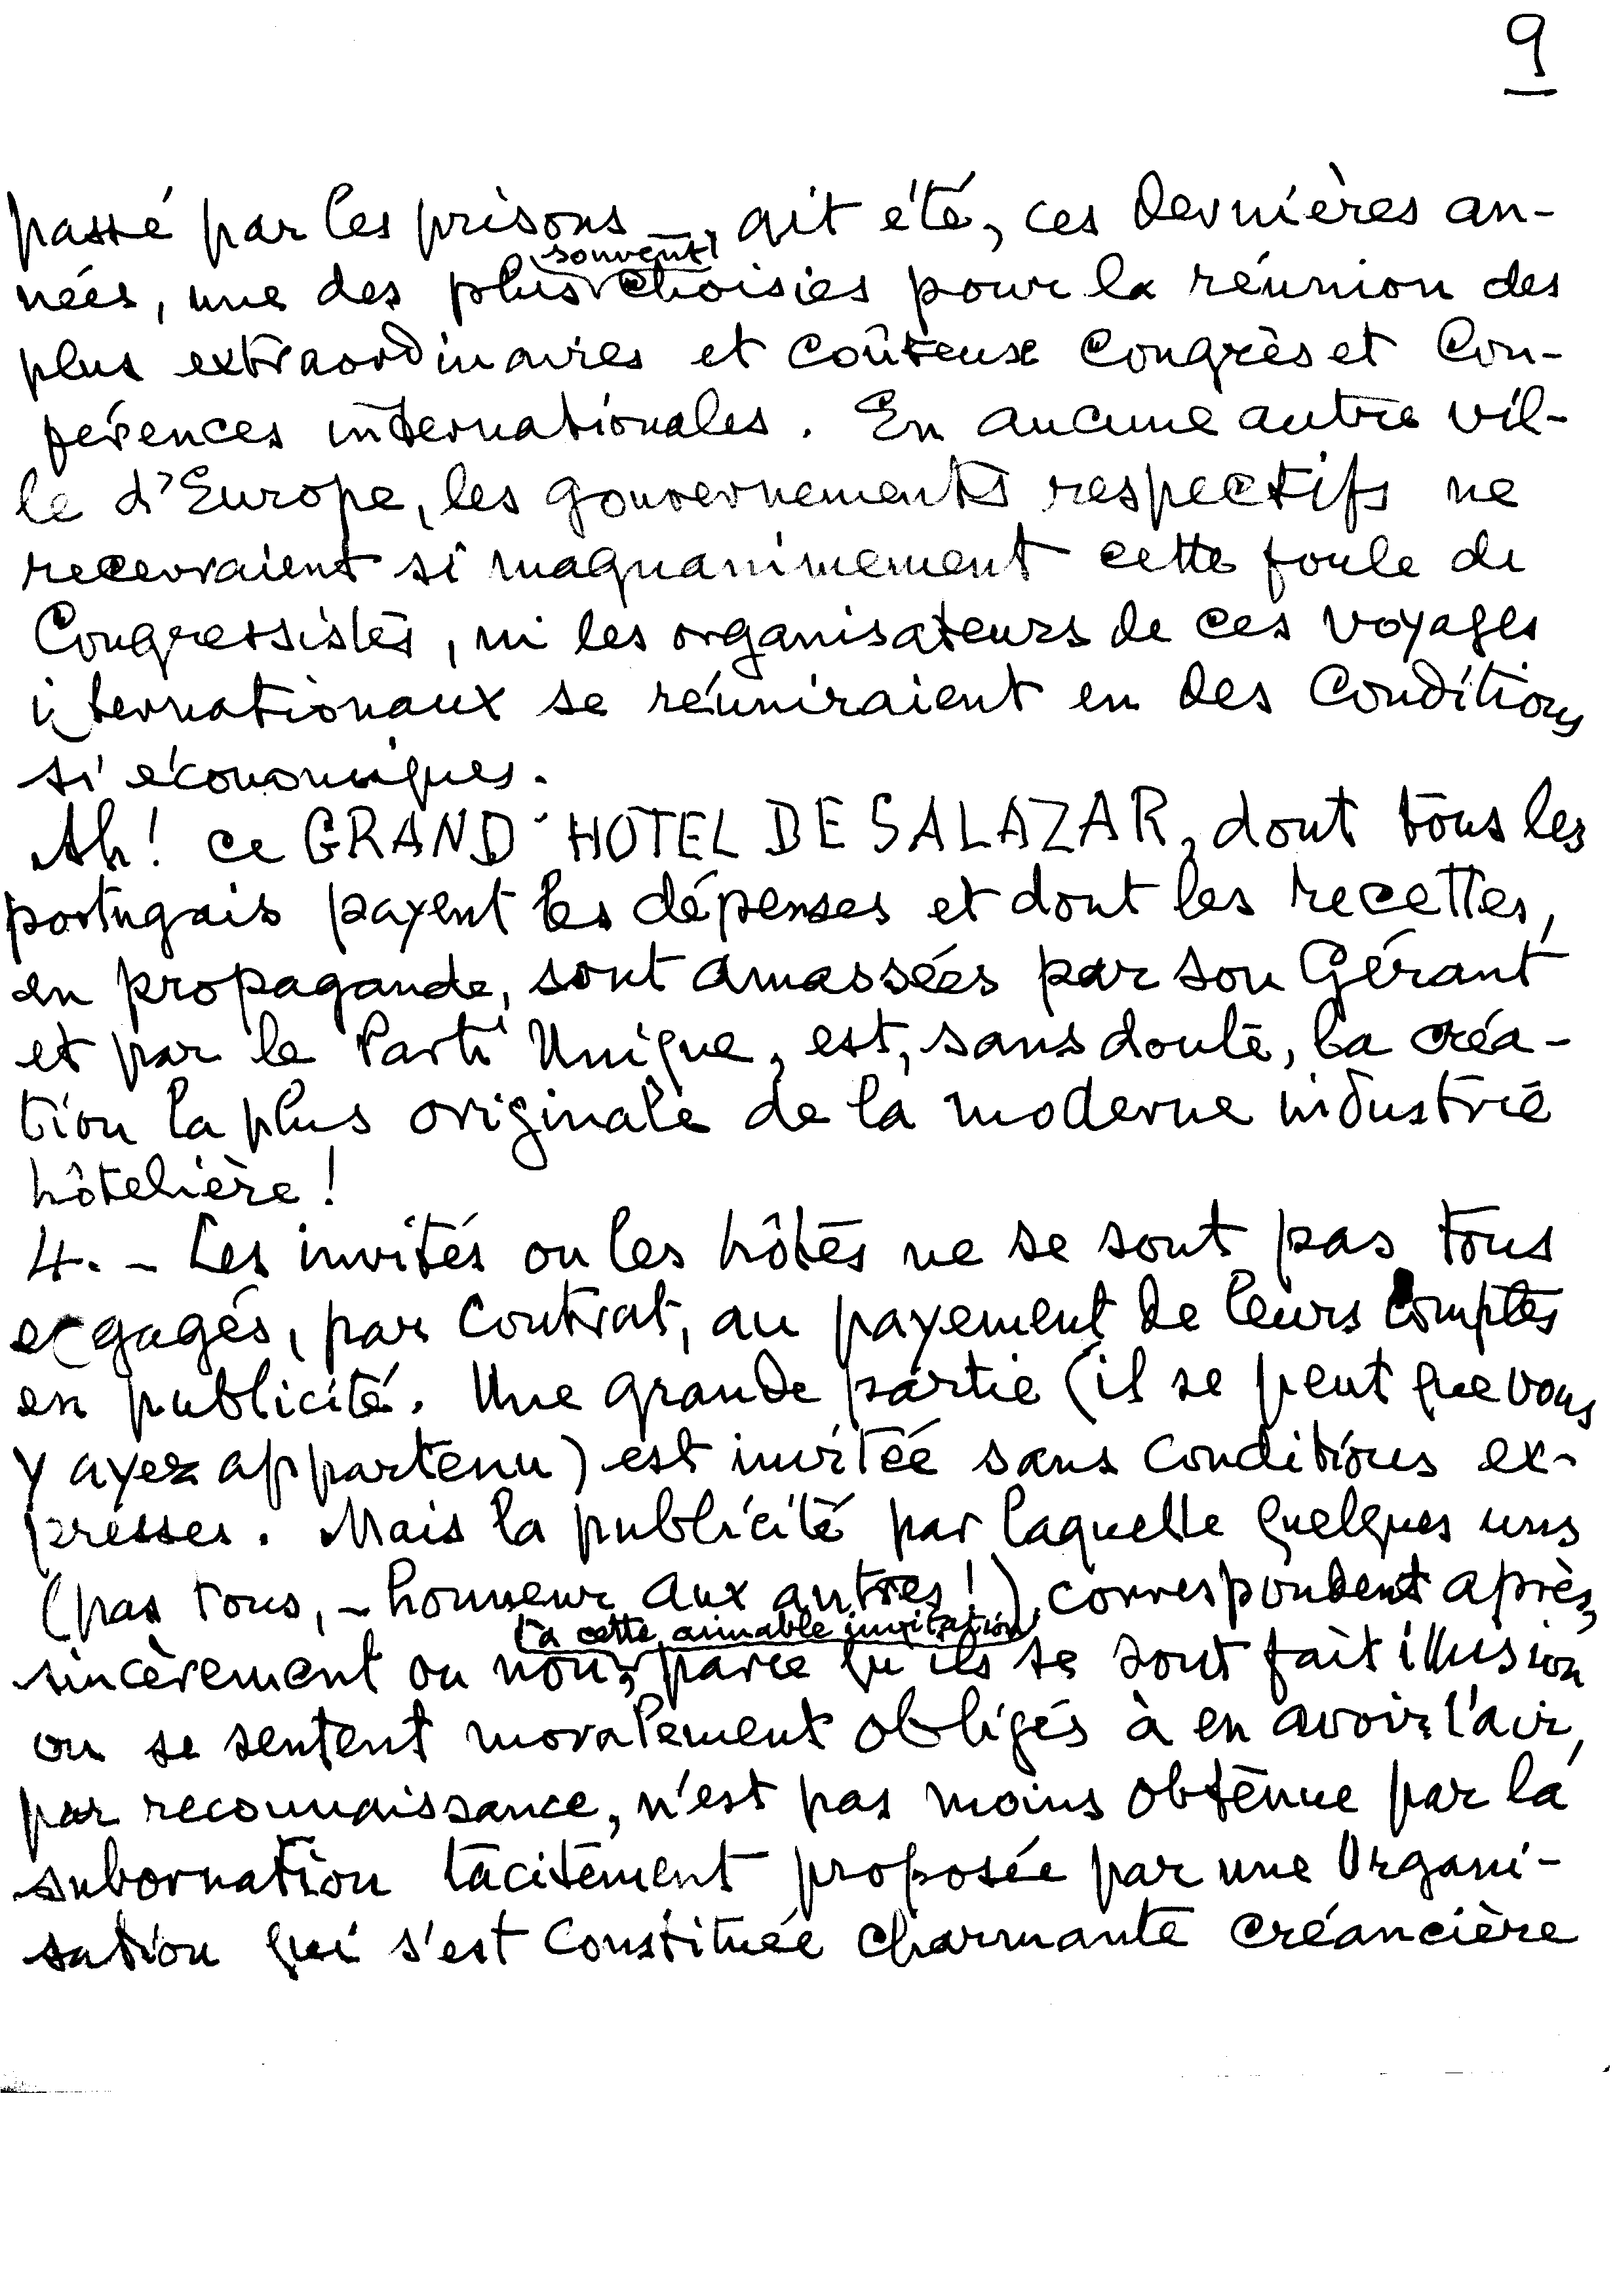 9
passé par les prisons —, ait été, ces dernières an-
souvent
nées, une des plus choisies pour la réunion des
plus extraordinaires et coûteux Congrès et Con-
férences internationales. En aucune autre vil-
le d'Europe, les gouvernements respectifs ne
recevraient si magnanimement cette foule de
Congressistes, ni les organisateurs de ces voyages
internationaux se réuniraient en des conditions
si économiques.
Ah! ce GRAND HOTEL DE SALAZAR, dont tous les
portugais payent les dépenses et dont les recettes,
en propagande, sont amassées par son Gérant
et par le Parti Unique, est, sans doute, la créa-
tion la plus originale de la moderne industrie
hôtelière!
4. – Les invités ou les hôtes ne se sont pas tous
engagés, par contrat, au payement de leurs comptes
en publicité. Une grande partie (il se peut que vous
y ayez appartenu) est invitée sans conditions ex-
presses. Mais la publicité par laquelle quelques uns
(pas tous, – honneur aux autres!) correspondent après,
à cette aimable invitation
sincèrement ou non, parce qu'ils se sont fait illusion
ou se sentent moralement obligés à en avoir l'air,
par reconnaissance, n'est pas moins obtenue par la
subornation tacitement proposée par une Organi-
sation qui s'est constituée charmante créancière